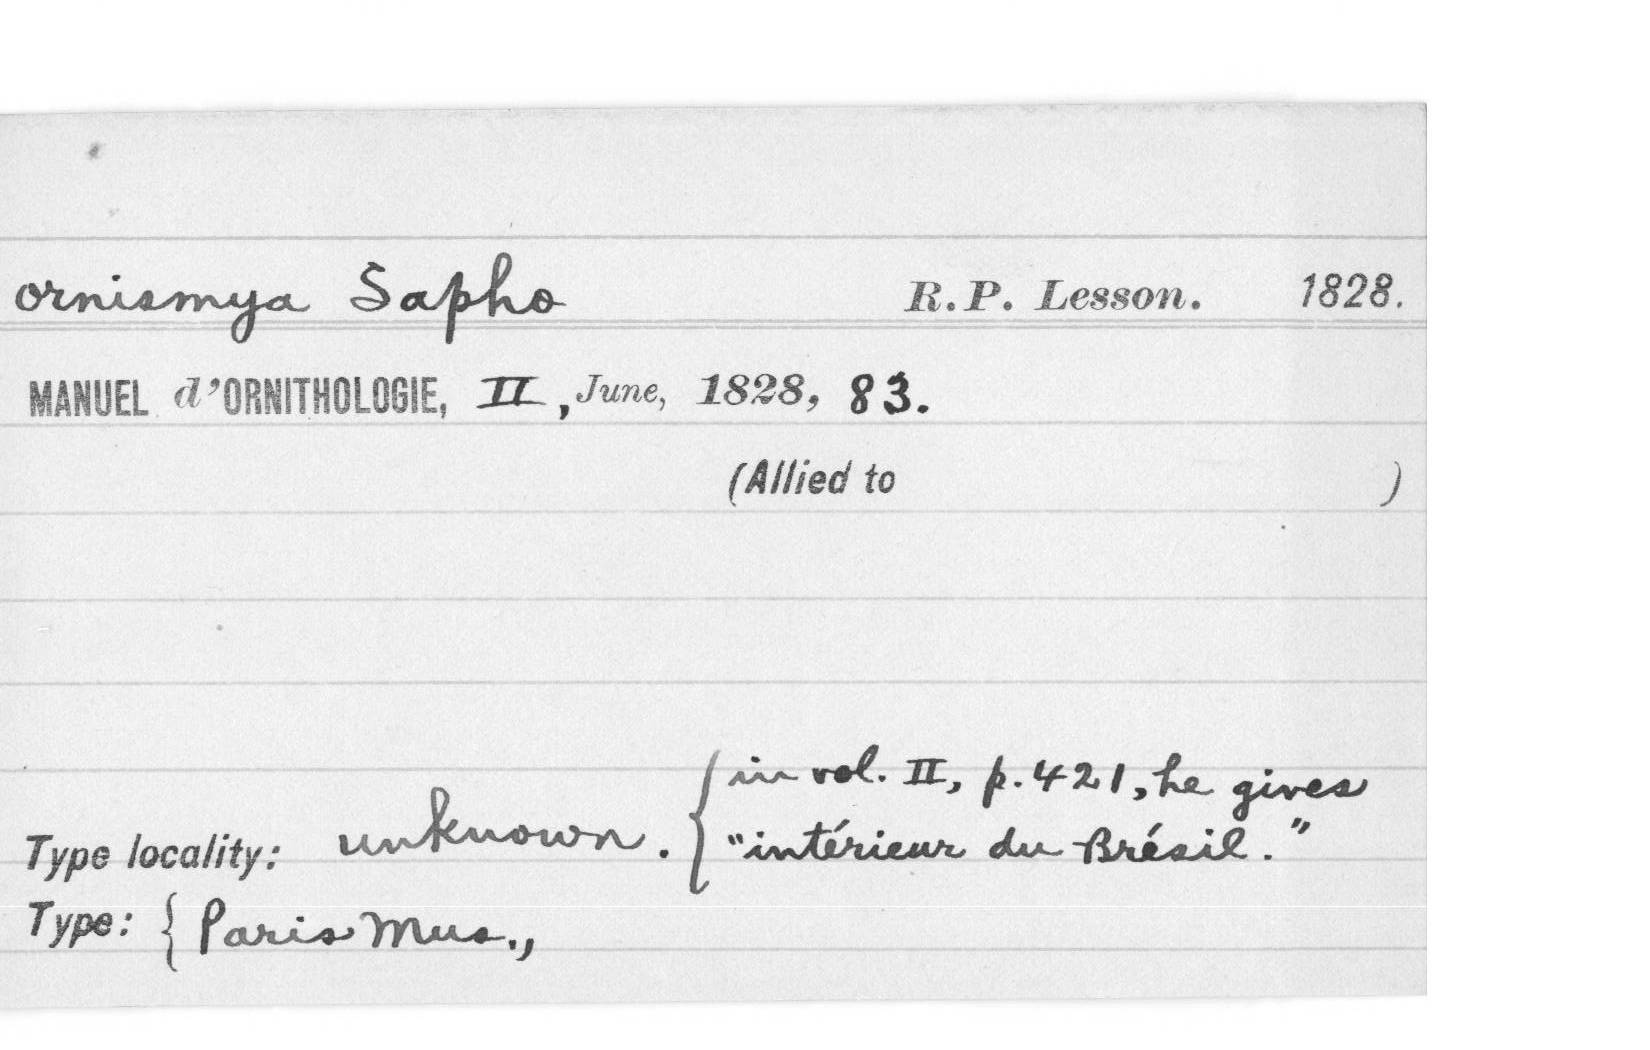 Ornismya Sapho R.P. Lesson. 1828.
MANUEL d'ORNITHOLOGIE, II, June, 1828, 83.
(Allied to )
in vol. II, p. 421, he gives
Type locality: unknown. { "intérieur du Brésil."
Type: { Paris Mus.,